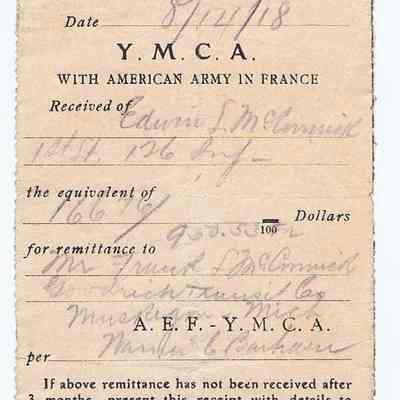 Date 8/14/18
Y. M. C. A.
WITH AMERICAN ARMY IN FRANCE
Received of
Edwin L McCormick
1st Lt. 126 Inf
the equivalent of
166 76/
100 Dollars
for remittance to
Mr Frank L McCormick
Goodrich Transit Co
Muskegon Mich
A. E. F. - Y. M. C. A.
per
If above remittance has not been received after
3 months, present this receipt with details to